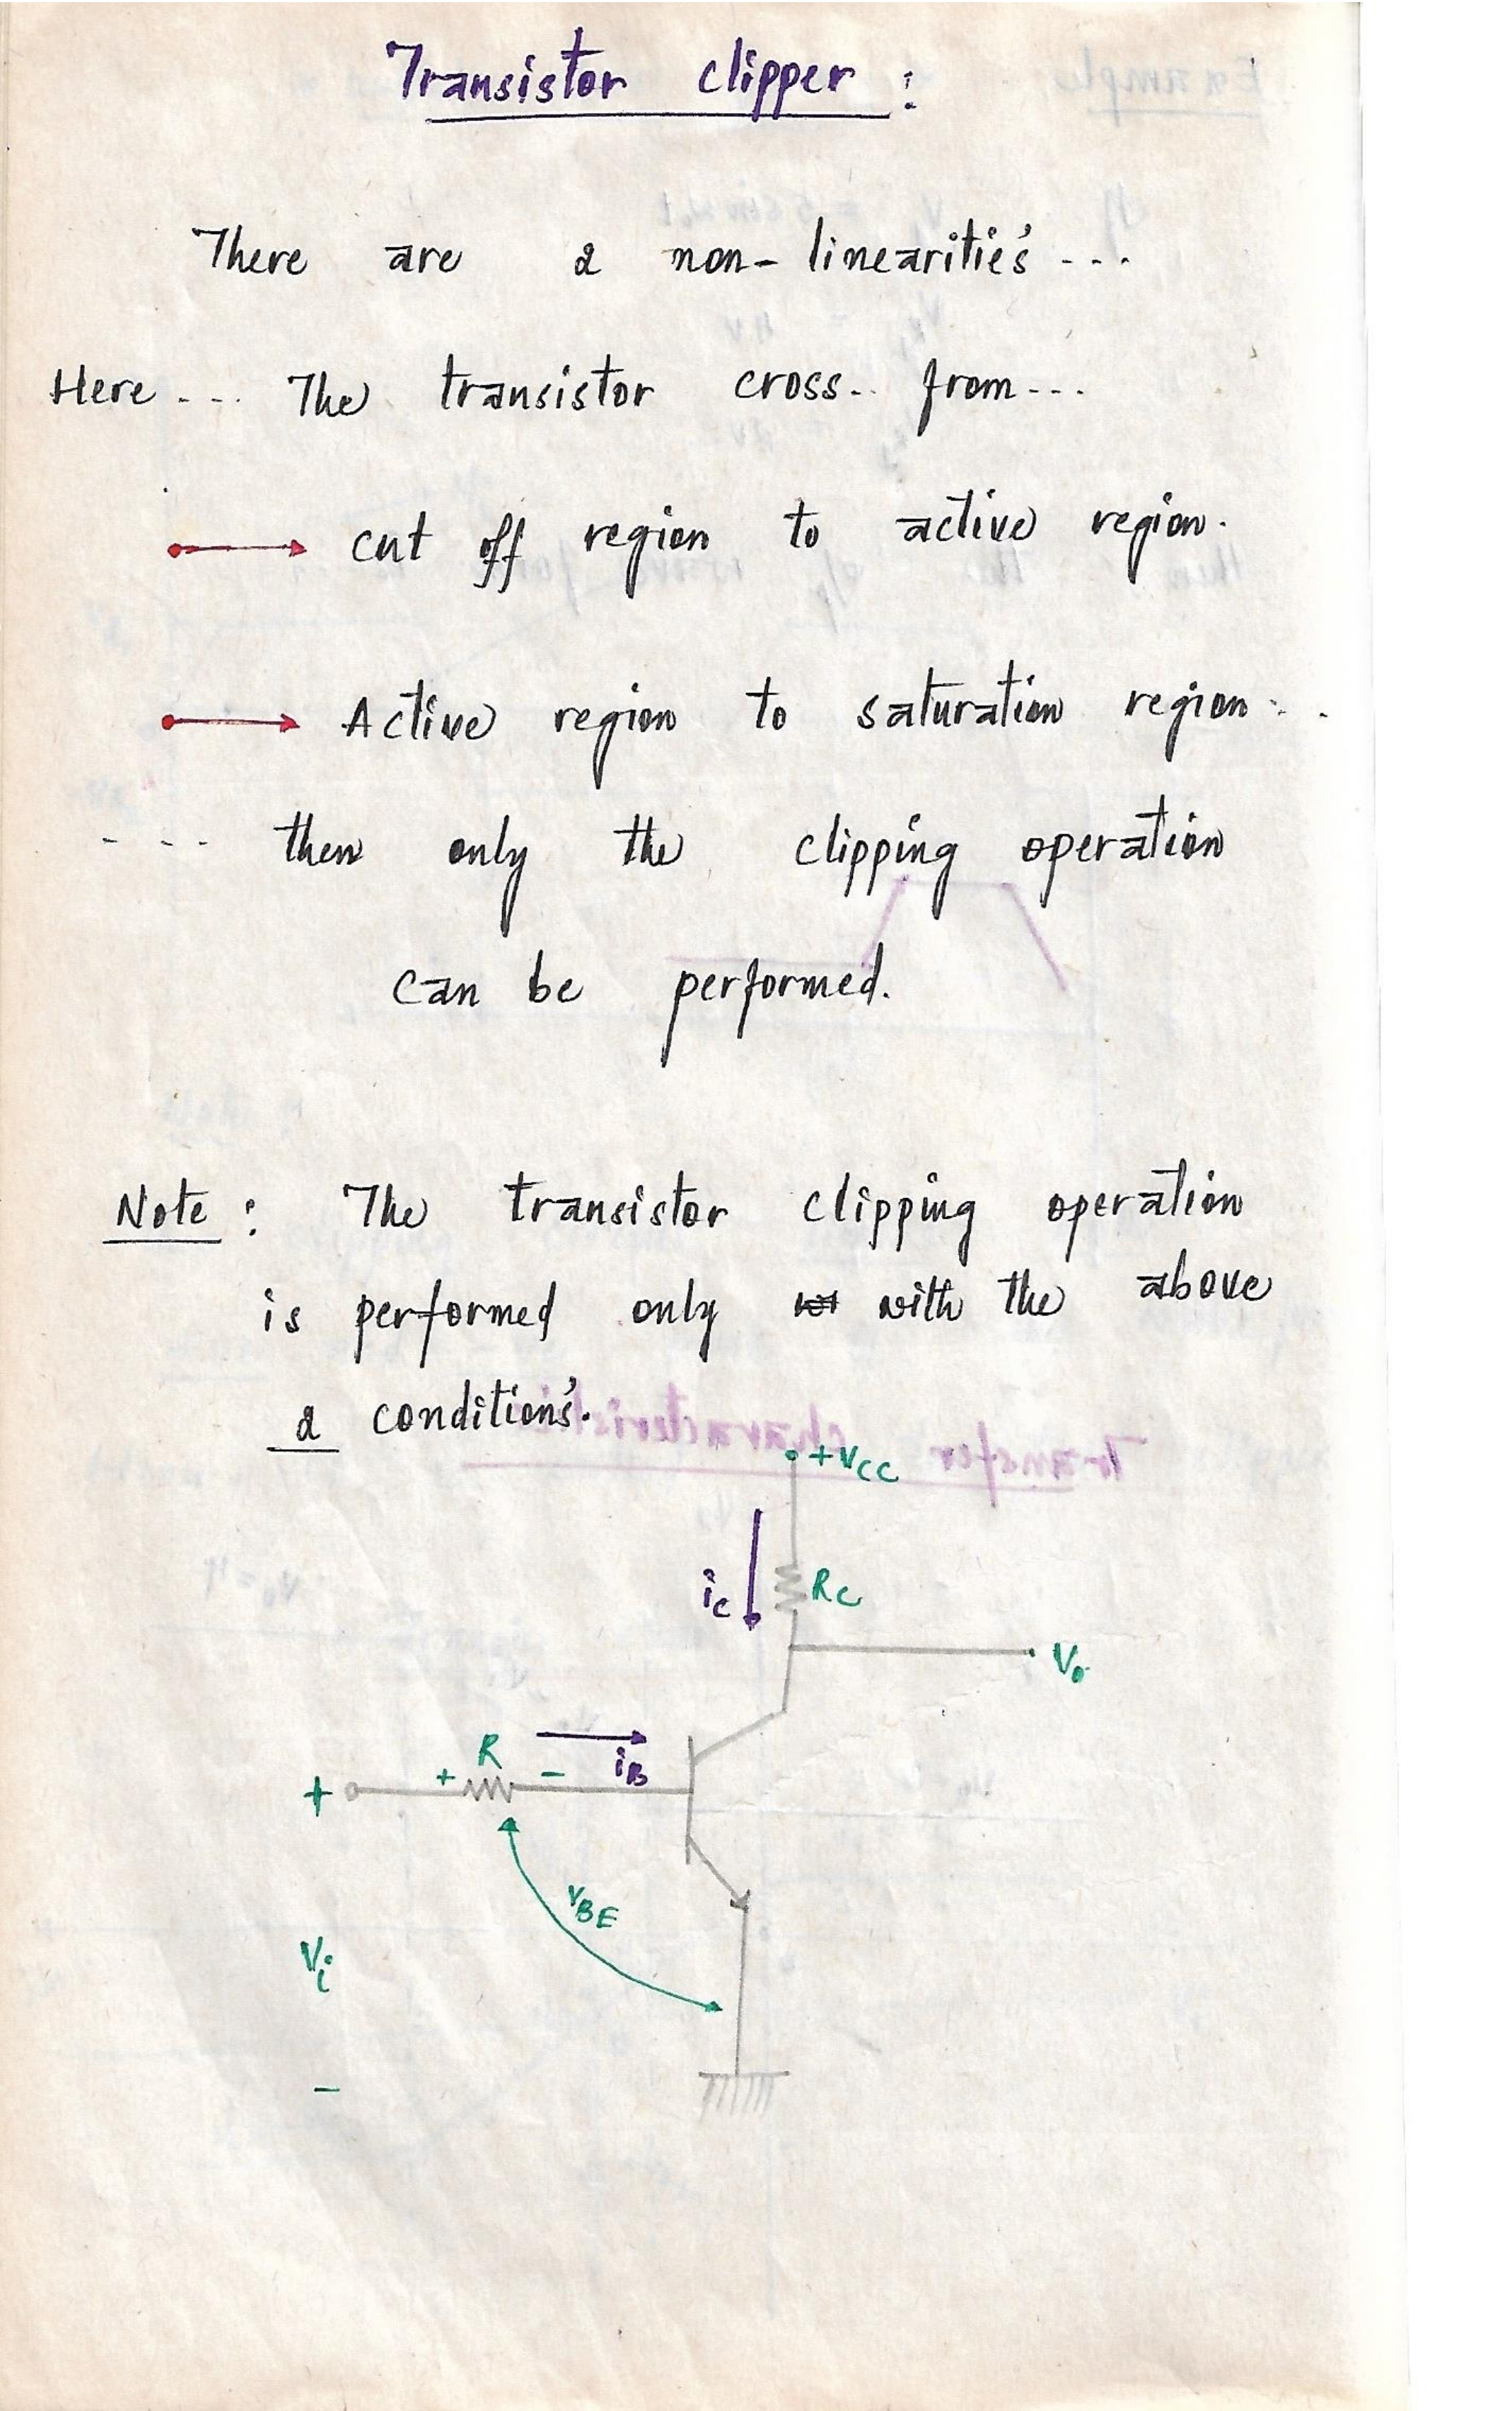 Transistor clipper :
There are 2 non-linearitie's ...
Here ... The transistor cross.. from...
cut off region to active region.
Active region to saturation region...
.... then only the clipping operation
can be performed.
Note : The transistor clipping operation
is performed only with the above
2 condition's.
+VCC
iC RC
Vo
R
+ - iB
+
VBE
Vi
-